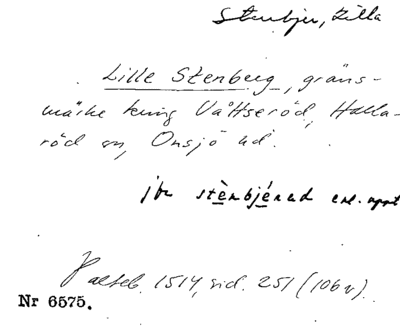 Stenbjer, Lilla
Lille Stenberg, gräns-
märke kring Våttseröd, Halla-
röd sn, Onsjö hd.
jfr stènbjérnad enl. uppt
Palteb. 1514, sid. 251 (106v).
Nr 6575.